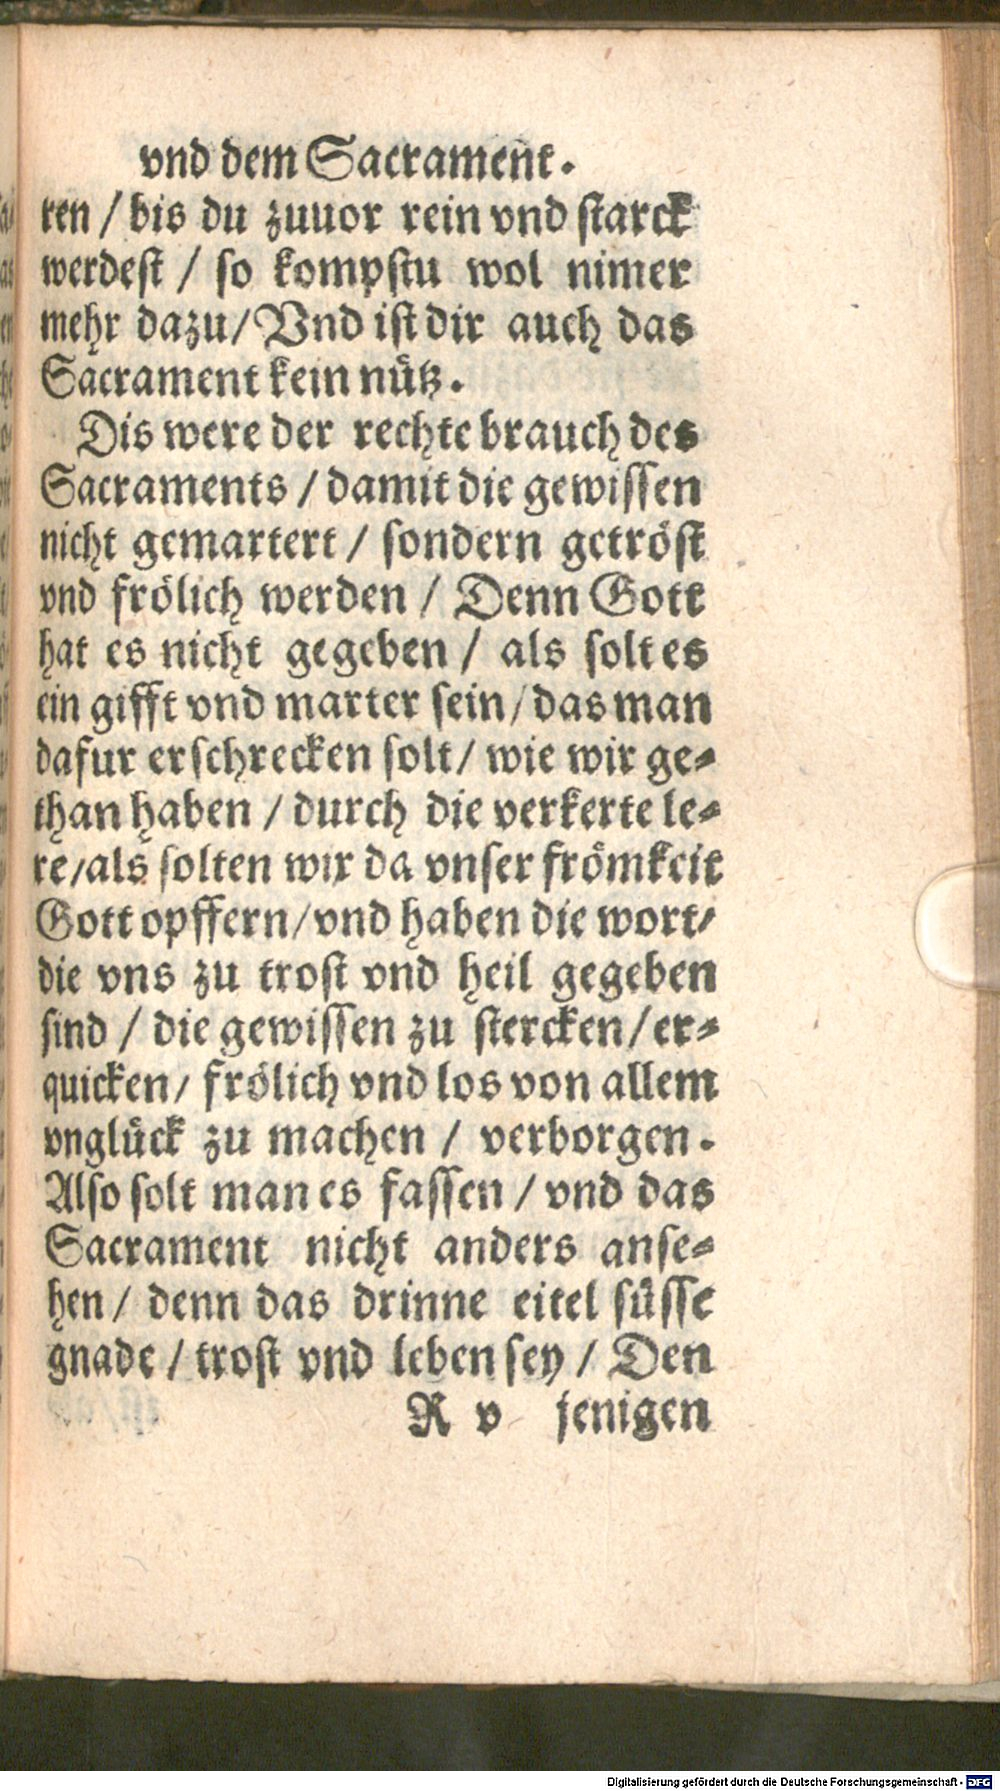 vnd dem Sacrament.
ren / bis du zuuor rein vnd starck
werdest / so kompstu wol nimer
mehr dazu / Vnd ist dir auch das
Sacrament kein nütz.
Dis were der rechte brauch des
Sacraments / damit die gewissen
nicht gemartert / sondern getröst
vnd frölich werden / Denn Gott
hat es nicht gegeben / als solt es
ein gifft vnd marter sein / das man
dafur erschrecken solt / wie wir ge-
than haben / durch die verkerte le-
re / als solten wir da vnser frömkeit
Gott opffern / vnd haben die wort /
die vns zu trost vnd heil gegeben
sind / die gewissen zu stercken / er-
quicken / frölich vnd los von allem
vnglück zu machen / verborgen.
Also solt man es fassen / vnd das
Sacrament nicht anders anse-
hen / denn das drinne eitel süsse
gnade / trost vnd leben sey / Den
R v jenigen
Digitalisierung gefördert durch die Deutsche Forschungsgemeinschaft - DFG